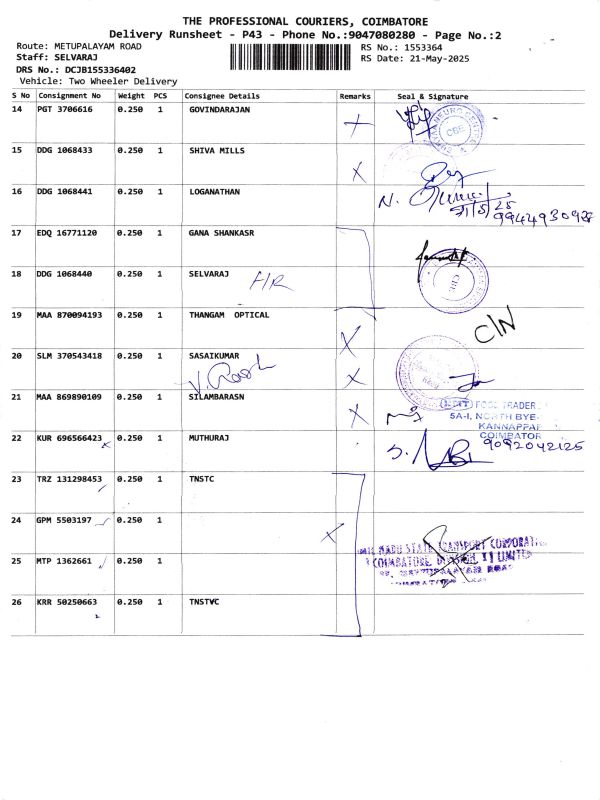 THE PROFESSIONAL COURIERS, COIMBATORE
Delivery Runsheet - P43 - Phone No.:9047080280 - Page No.:2
Route: METUPALAYAM ROAD
RS No.: 1553364
Staff: SELVARAJ
RS Date: 21-May-2025
DRS No.: DCJB155336402
Vehicle: Two Wheeler Delivery
S No Consignment No Weight PCS Consignee Details Remarks Seal & Signature
14 PGT 3706616 0.250 1 GOVINDARAJAN
CBE
15 DDG 1068433 0.250 1 SHIVA MILLS
16 DDG 1068441 0.250 1 LOGANATHAN
N.
21/5/25
9944930928
17 EDQ 16771120 0.250 1 GANA SHANKASR
18 DDG 1068440 0.250 1 SELVARAJ H/R
CBE
19 MAA 870094193 0.250 1 THANGAM OPTICAL
C/N
20 SLM 370543418 0.250 1 SASAIKUMAR
21 MAA 869890109 0.250 1 SILAMBARASN
FOOD TRADER
5A-I, NORTH BYE-
KANNAPPA
COIMBATOR
22 KUR 696566423 0.250 1 MUTHURAJ
9092042125
23 TRZ 131298453 0.250 1 TNSTC
24 GPM 5503197 0.250 1
TAMIL NADU STATE TRANSPORT CORPORATI
COIMBATORE, DIVISION II LIMITED
25 MTP 1362661 0.250 1
26 KRR 50250663 0.250 1 TNSTVC